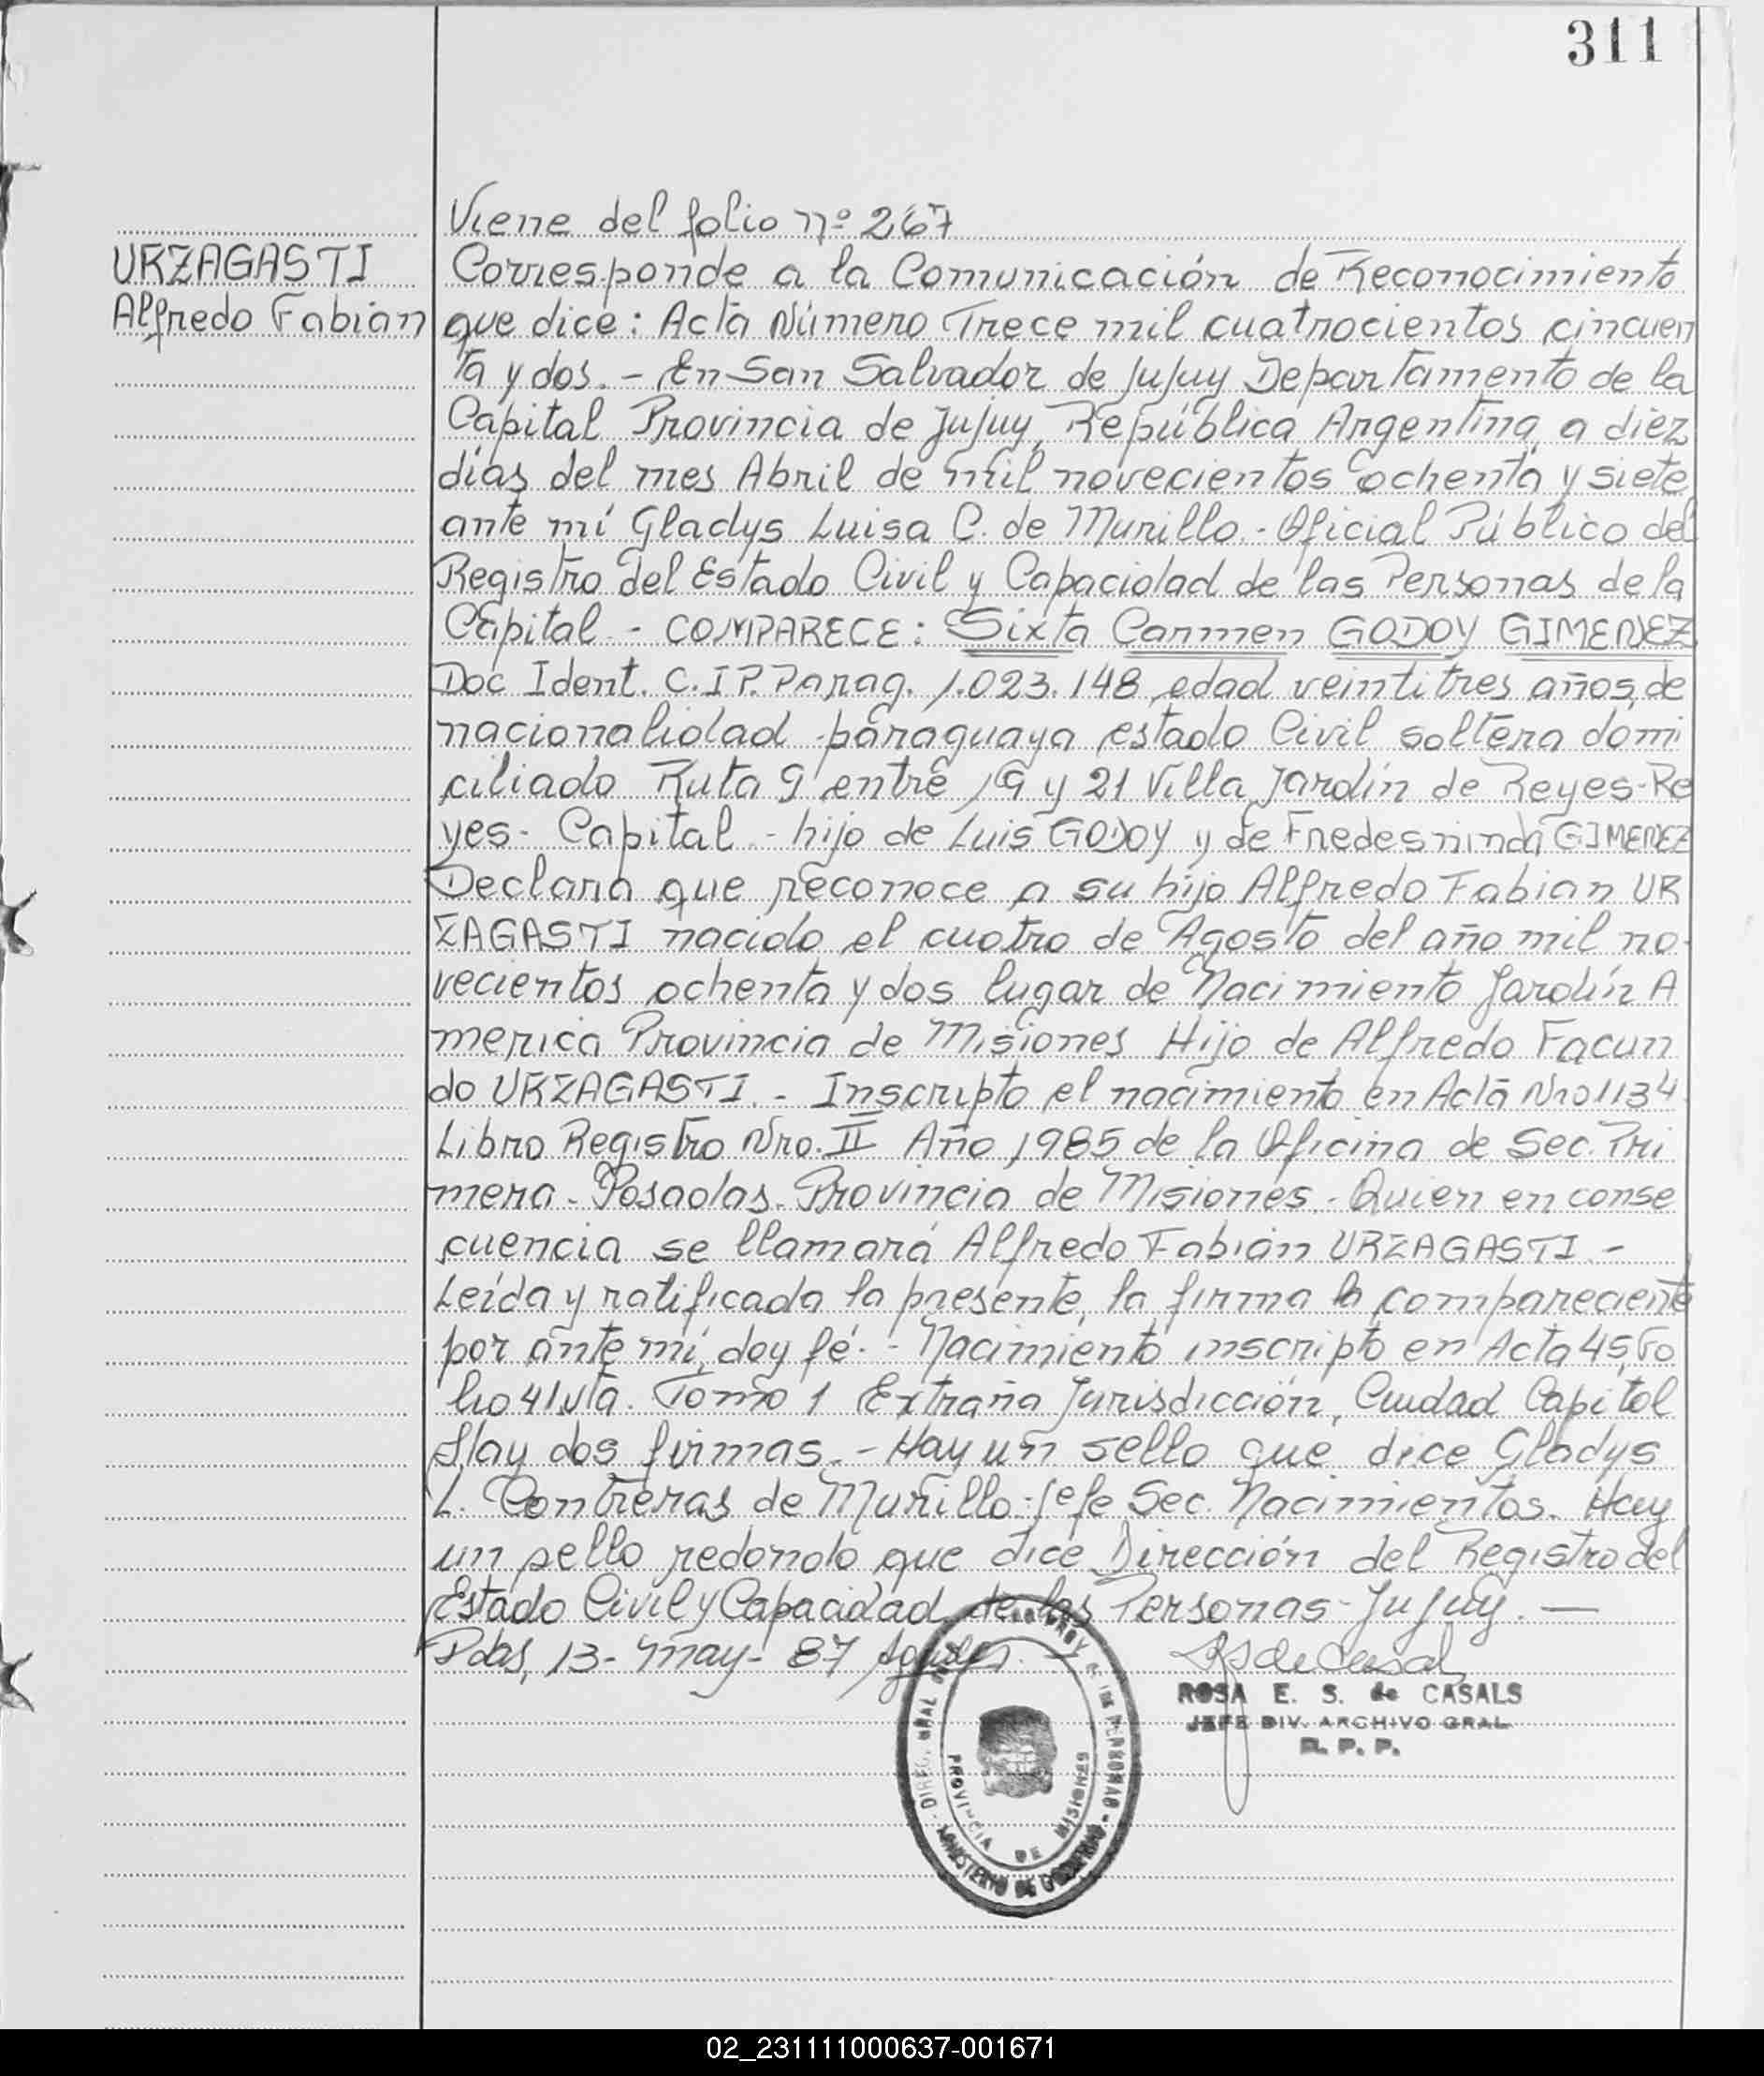 311
Viene del folio nº 267
URZAGASTI
Alfredo Fabian
Corresponde a la Comunicación de Reconocimiento
que dice: Acta Número Trece mil cuatrocientos cincuen
ta y dos. - En San Salvador de Jujuy Departamento de la
Capital, Provincia de Jujuy, República Argentina, a diez
días del mes Abril de mil novecientos ochenta y siete
ante mí Gladys Luisa C. de Murillo - Oficial Público del
Registro del Estado Civil y Capacidad de las Personas de la
Capital - COMPARECE: Sixta Carmen GODOY GIMENEZ
Doc Ident. C.I P. Parag. 1.023.148, edad veintitres años, de
nacionalidad paraguaya estado Civil soltera domi
ciliado Ruta 9 entre 19 y 21 Villa Jardín de Reyes - Re
yes - Capital - hijo de Luis GODOY y de Fredesninda GIMENEZ
Declara que reconoce a su hijo Alfredo Fabian UR
ZAGASTI nacido el cuatro de Agosto del año mil no
vecientos ochenta y dos lugar de Nacimiento Jardín A
merica Provincia de Misiones Hijo de Alfredo Facun
do URZAGASTI. - Inscripto el nacimiento en Acta Nro 1134
Libro Registro Nro. II Año 1985 de la Oficina de Sec. Pri
mera - Posadas - Provincia de Misiones - Quien en conse
cuencia se llamará Alfredo Fabián URZAGASTI. -
Leída y ratificada la presente, la firma la compareciente
por ante mí, doy fé. - Nacimiento inscripto en Acta 45, Fo
lio 41 vta. Tomo 1 Extraña Jurisdicción, Ciudad Capital
Hay dos firmas. - Hay un sello que dice Gladys
L. Contreras de Murillo - Jefe Sec. Nacimientos. Hay
un sello redondo que dice Dirección del Registro del
Estado Civil y Capacidad de las Personas - Jujuy. —
Pdas, 13 - May - 87
ROSA E. S. de CASALS
JEFE DIV. ARCHIVO GRAL
R. P. P.
PROVINCIA DE MISIONES
MINISTERIO DE GOBIERNO
02_231111000637-001671